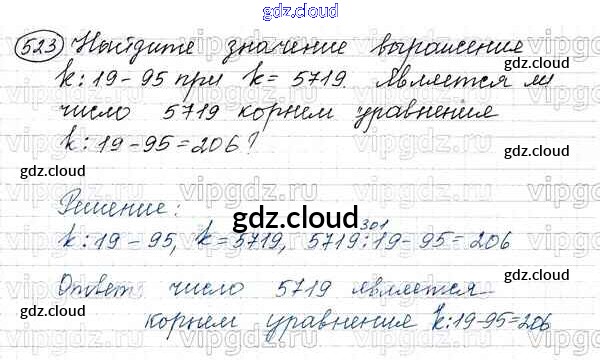 gdz.cloud
523 Найдите значение выражение
gdz.cloud
k : 19 - 95 при k = 5719. Является ли
gdz.cloud
число 5719 корнем уравнения
gdz.cloud
k : 19 - 95 = 206?
gdz.cloud
vipgdz.ru
Решение:
gdz.cloud
301
k : 19 - 95, k = 5719, 5719 : 19 - 95 = 206
gdz.cloud
Ответ: число 5719 является
gdz.cloud
корнем уравнения k : 19 - 95 = 206
gdz.cloud